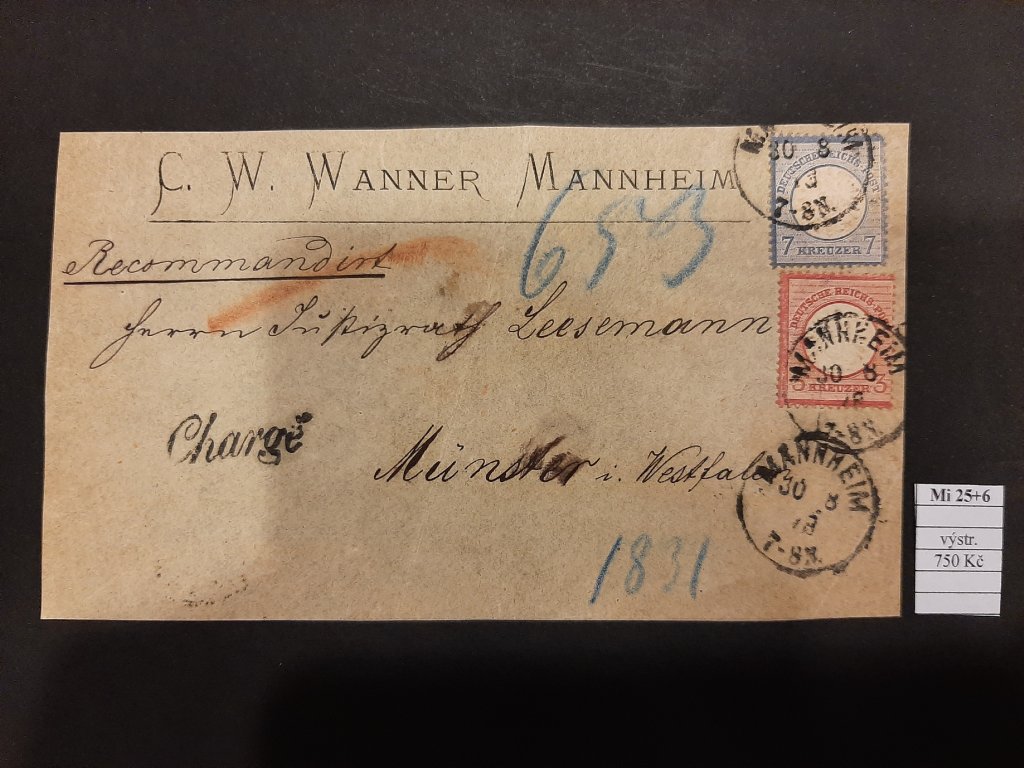 C. W. WANNER MANNHEIM
Recommandirt
653
Herrn Justizrath Leesemann
Chargé
Münster i. Westfalen
1831
MANNHEIM
30 8
7-8N.
DEUTSCHE REICHS-POST
7 KREUZER 7
DEUTSCHE REICHS-P
3 KREUZER 3
MANNHEIM
30 8
7-8N.
MANNHEIM
30 8
7-8N.
Mi 25+6
výstr.
750 Kč